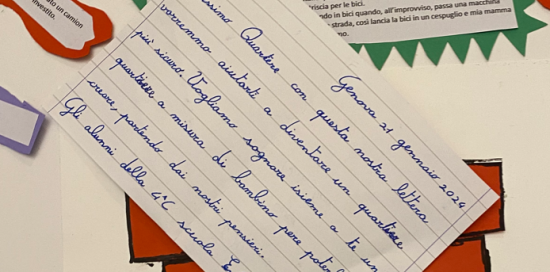 to un camion
investito.
riscia per le bici.
ndo in bici quando, all'improvviso, passa una macchina
strada, così lancia la bici in un cespuglio e mia mamma
no.
Genova 21 gennaio 2024
ssimo Quartiere con questa nostra lettera
vorremmo aiutarti a diventare un quartiere
più sicuro. Vogliamo sognare insieme a te un
quartiere a misura di bambino pere poter
creare, partendo dai nostri pensieri.
Gli alunni della 4ªC scuola